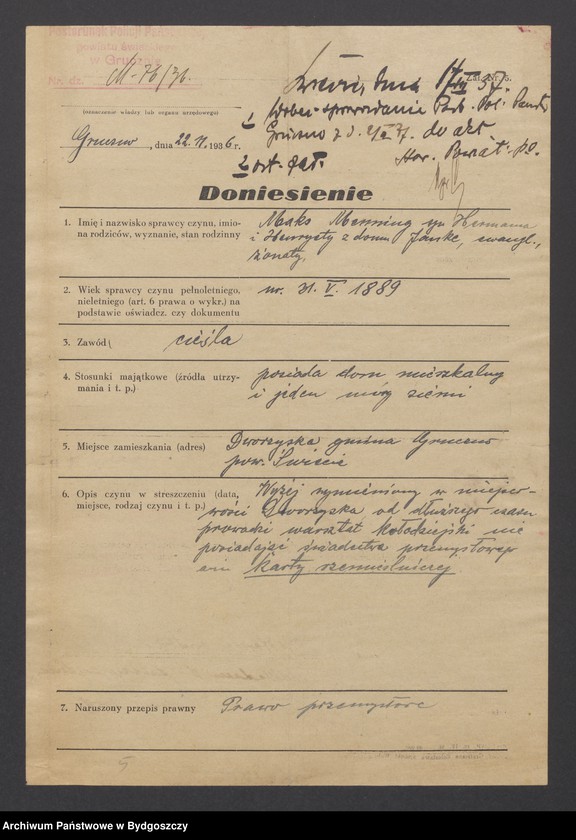 Posterunek Policji Państw.
powiatu świeckiego
w Grucznie
Nr. dz. M-76/36.
Zał. Nr. 5.
(oznaczenie władzy lub organu urzędowego)
Gruczno, dnia 22.V. 1936 r.
dnia 37.
do akt
2
Doniesienie
1. Imię i nazwisko sprawcy czynu, imio-
na rodziców, wyznanie, stan rodzinny
Maks Menning syn Hermana
i Henryety z domu Janke, ewangl.,
żonaty,
2. Wiek sprawcy czynu pełnoletniego,
nieletniego (art. 6 prawa o wykr.) na
podstawie oświadcz. czy dokumentu
ur. 31. V. 1889
3. Zawód
cieśla
4. Stosunki majątkowe (źródła utrzy-
mania i t. p.)
posiada dom mieszkalny
i jeden mórg ziemi
5. Miejsce zamieszkania (adres)
Dworzyska gmina Gruczno
pow. Świecie
6. Opis czynu w streszczeniu (data,
miejsce, rodzaj czynu i t. p.)
Wyżej wymieniony w miejsco-
wości Dworzyska od dłuższego czasu
prowadzi warsztat kołodziejski nie
posiadając świadectwa przemysłowego
ani karty rzemieślniczej
7. Naruszony przepis prawny
Prawo przemysłowe
Archiwum Państwowe w Bydgoszczy